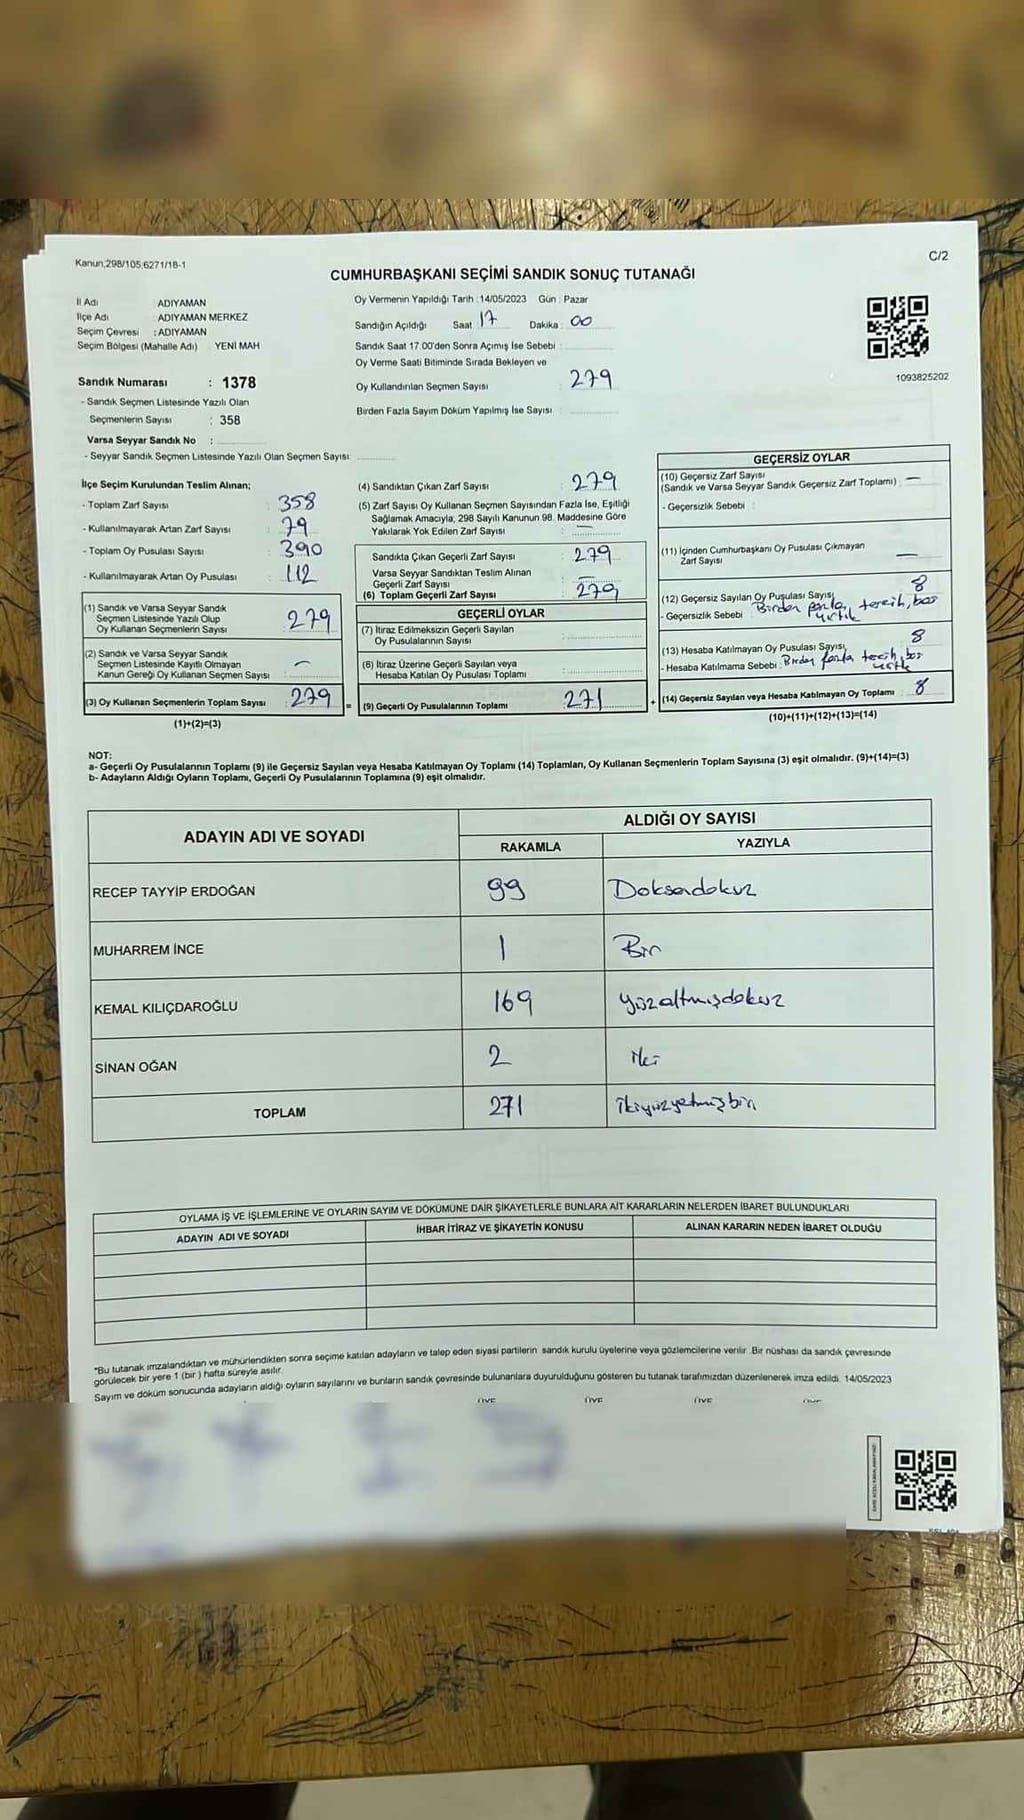 Kanun;298/105;6271/18-1
C/2
CUMHURBAŞKANI SEÇİMİ SANDIK SONUÇ TUTANAĞI
İl Adı ADIYAMAN
İlçe Adı ADIYAMAN MERKEZ
Seçim Çevresi : ADIYAMAN
Seçim Bölgesi (Mahalle Adı) YENİ MAH
Oy Vermenin Yapıldığı Tarih : 14/05/2023 Gün : Pazar
Sandığın Açıldığı Saat 17 Dakika : 00
Sandık Saat 17.00'den Sonra Açımış İse Sebebi :
Oy Verme Saati Bitiminde Sırada Bekleyen ve
Oy Kullandırılan Seçmen Sayısı : 279
Birden Fazla Sayım Döküm Yapılmış İse Sayısı :
1093825202
Sandık Numarası : 1378
- Sandık Seçmen Listesinde Yazılı Olan
Seçmenlerin Sayısı : 358
Varsa Seyyar Sandık No :
- Seyyar Sandık Seçmen Listesinde Yazılı Olan Seçmen Sayısı:
İlçe Seçim Kurulundan Teslim Alınan;
- Toplam Zarf Sayısı : 358
- Kullanılmayarak Artan Zarf Sayısı : 79
- Toplam Oy Pusulası Sayısı : 390
- Kullanılmayarak Artan Oy Pusulası : 112
(1) Sandık ve Varsa Seyyar Sandık
Seçmen Listesinde Yazılı Olup
Oy Kullanan Seçmenlerin Sayısı : 279
(2) Sandık ve Varsa Seyyar Sandık
Seçmen Listesinde Kayıtlı Olmayan
Kanun Gereği Oy Kullanan Seçmen Sayısı : –
(3) Oy Kullanan Seçmenlerin Toplam Sayısı : 279 =
(1)+(2)=(3)
(4) Sandıktan Çıkan Zarf Sayısı : 279
(5) Zarf Sayısı Oy Kullanan Seçmen Sayısından Fazla İse, Eşitliği
Sağlamak Amacıyla, 298 Sayılı Kanunun 98. Maddesine Göre
Yakılarak Yok Edilen Zarf Sayısı : –
Sandıkta Çıkan Geçerli Zarf Sayısı : 279
Varsa Seyyar Sandıktan Teslim Alınan
Geçerli Zarf Sayısı : –
(6) Toplam Geçerli Zarf Sayısı : 279
GEÇERLİ OYLAR
(7) İtiraz Edilmeksizin Geçerli Sayılan
Oy Pusulalarının Sayısı :
(8) İtiraz Üzerine Geçerli Sayılan veya
Hesaba Katılan Oy Pusulası Toplamı :
(9) Geçerli Oy Pusulalarının Toplamı : 271 +
GEÇERSİZ OYLAR
(10) Geçersiz Zarf Sayısı
(Sandık ve Varsa Seyyar Sandık Geçersiz Zarf Toplamı) : –
- Geçersizlik Sebebi :
(11) İçinden Cumhurbaşkanı Oy Pusulası Çıkmayan
Zarf Sayısı –
(12) Geçersiz Sayılan Oy Pusulası Sayısı 8
- Geçersizlik Sebebi : Birden fazla, tercih, boş
yırtık
(13) Hesaba Katılmayan Oy Pusulası Sayısı 8
- Hesaba Katılmama Sebebi : Birden fazla tercih, boş
yırtık
(14) Geçersiz Sayılan veya Hesaba Katılmayan Oy Toplamı : 8
(10)+(11)+(12)+(13)=(14)
NOT:
a- Geçerli Oy Pusulalarının Toplamı (9) ile Geçersiz Sayılan veya Hesaba Katılmayan Oy Toplamı (14) Toplamları, Oy Kullanan Seçmenlerin Toplam Sayısına (3) eşit olmalıdır. (9)+(14)=(3)
b- Adayların Aldığı Oyların Toplamı, Geçerli Oy Pusulalarının Toplamına (9) eşit olmalıdır.
ADAYIN ADI VE SOYADI
ALDIĞI OY SAYISI
RAKAMLA YAZIYLA
RECEP TAYYİP ERDOĞAN 99 Doksandokuz
MUHARREM İNCE 1 Bir
KEMAL KILIÇDAROĞLU 169 yüzaltmışdokuz
SİNAN OĞAN 2 iki
TOPLAM 271 ikiyüzyetmişbir
OYLAMA İŞ VE İŞLEMLERİNE VE OYLARIN SAYIM VE DÖKÜMÜNE DAİR ŞİKAYETLERLE BUNLARA AİT KARARLARIN NELERDEN İBARET BULUNDUKLARI
ADAYIN ADI VE SOYADI İHBAR İTİRAZ VE ŞİKAYETİN KONUSU ALINAN KARARIN NEDEN İBARET OLDUĞU
*Bu tutanak imzalandıktan ve mühürlendikten sonra seçime katılan adayların ve talep eden siyasi partilerin sandık kurulu üyelerine veya gözlemcilerine verilir .Bir nüshası da sandık çevresinde
görülecek bir yere 1 (bir ) hafta süreyle asılır.
Sayım ve döküm sonucunda adayların aldığı oyların sayılarını ve bunların sandık çevresinde bulunanlara duyurulduğunu gösteren bu tutanak tarafımızdan düzenlenerek imza edildi. 14/05/2023
ÜYE ÜYE ÜYE